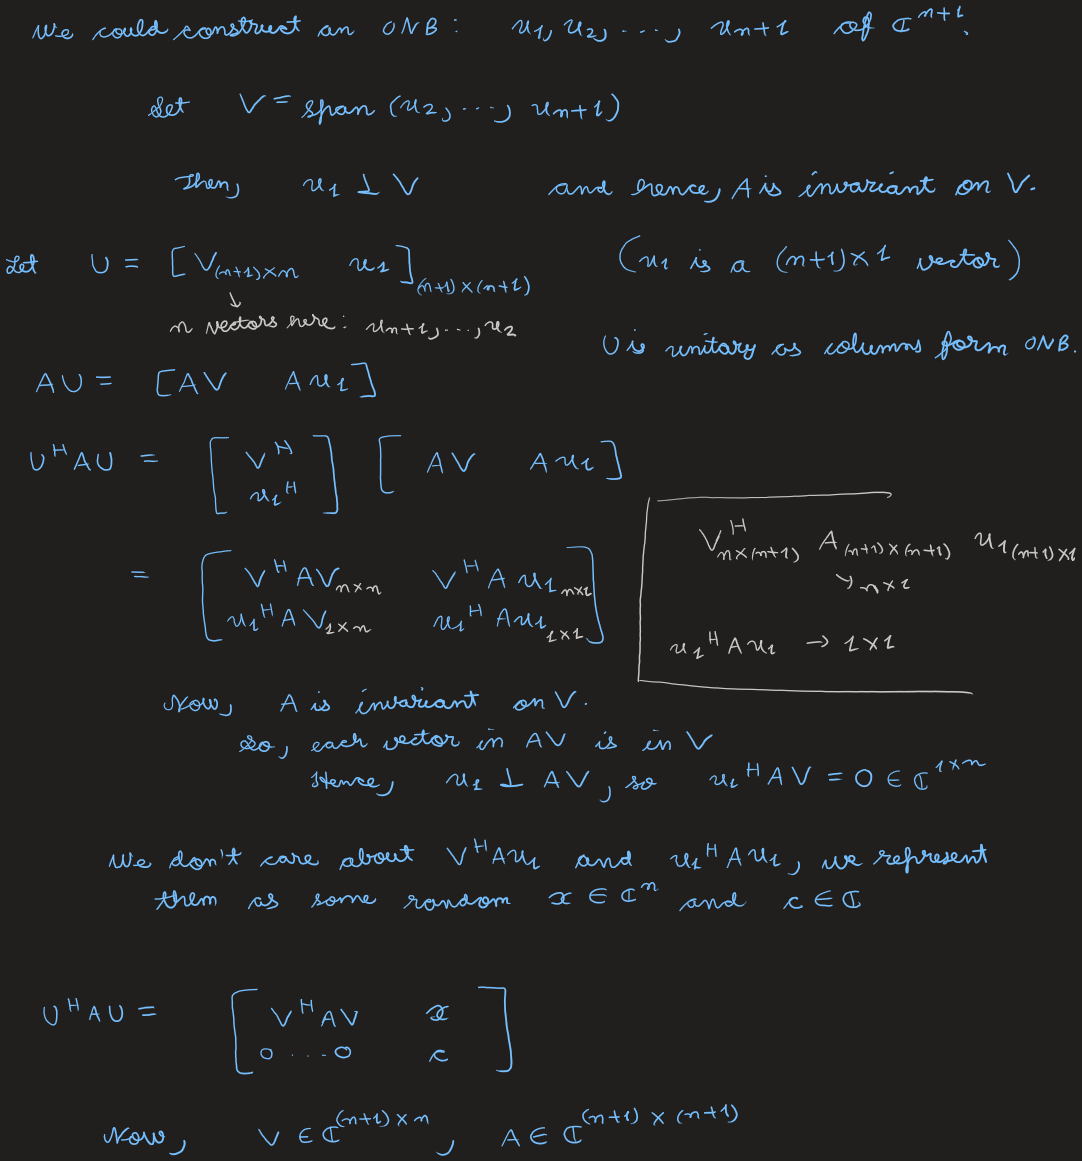 We could construct an ONB : u₁, u₂, ..., uₙ₊₁ of ℂⁿ⁺¹.
Set V = span (u₂, ..., uₙ₊₁)
Then, u₁ ⊥ V and hence, A is invariant on V.
Let U = [V₍ₙ₊₁₎ₓₙ u₁]₍ₙ₊₁₎ₓ₍ₙ₊₁₎ (u₁ is a (n+1)×1 vector)
↓
n vectors here : uₙ₊₁, ..., u₂
U is unitary as columns form ONB.
AU = [AV Au₁]
U^H AU = [V^H u₁^H] [AV Au₁]
V^H n×(n+1) A (n+1)×(n+1) u₁ (n+1)×1
↘ n×1
= [V^H AV n×n V^H A u₁ n×1
u₁^H A V 1×n u₁^H Au₁ 1×1]
u₁^H A u₁ → 1×1
Now, A is invariant on V.
So, each vector in AV is in V
Hence, u₁ ⊥ AV, so u₁^H AV = 0 ∈ ℂ^{1×n}
We don't care about V^H Au₁ and u₁^H Au₁, we represent
them as some random x ∈ ℂⁿ and c ∈ ℂ
U^H AU = [V^H AV x
0 ... 0 c]
Now, V ∈ ℂ^{(n+1)×n}, A ∈ ℂ^{(n+1)×(n+1)}